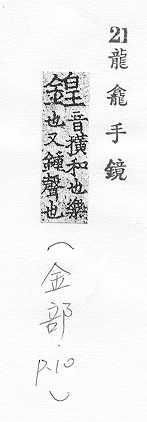 21 龍龕手鏡
鍠音撗和也樂
也又鍾聲也
（金部．
p.10）